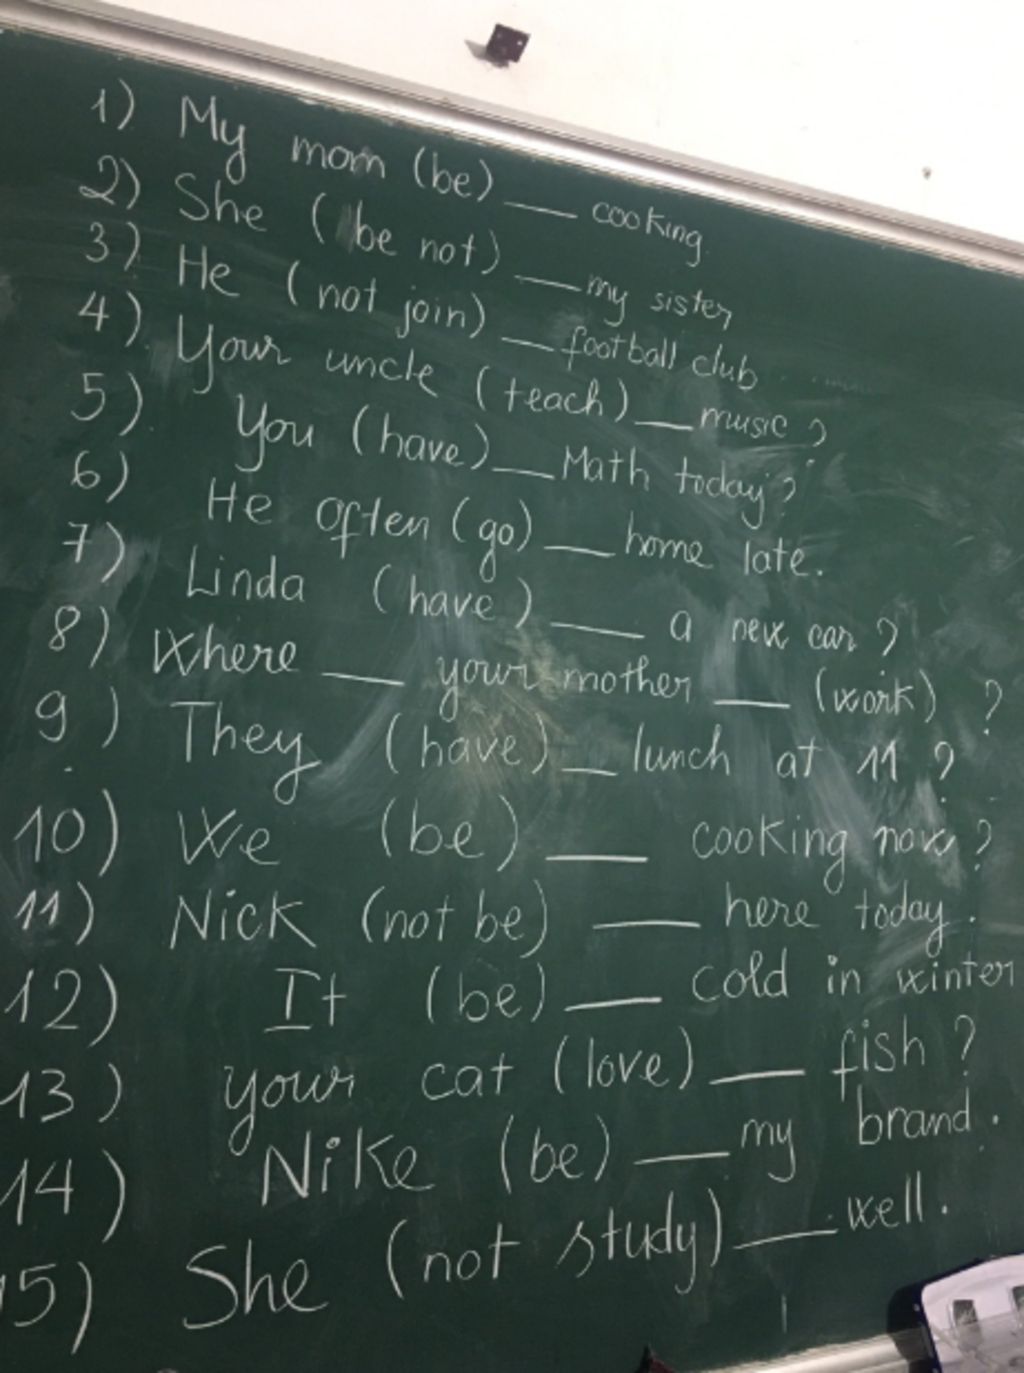 1) My mom (be) ___ cooking
2) She (be not) ___ my sister
3) He (not join) ___ football club
4) Your uncle (teach) ___ music?
5) You (have) ___ Math today?
6) He often (go) ___ home late.
7) Linda (have) ___ a new car?
8) Where ___ your mother ___ (work) ?
9) They (have) ___ lunch at 11?
10) We (be) ___ cooking now?
11) Nick (not be) ___ here today.
12) It (be) ___ cold in winter
13) your cat (love) ___ fish?
14) Nike (be) ___ my brand.
15) She (not study) ___ well.